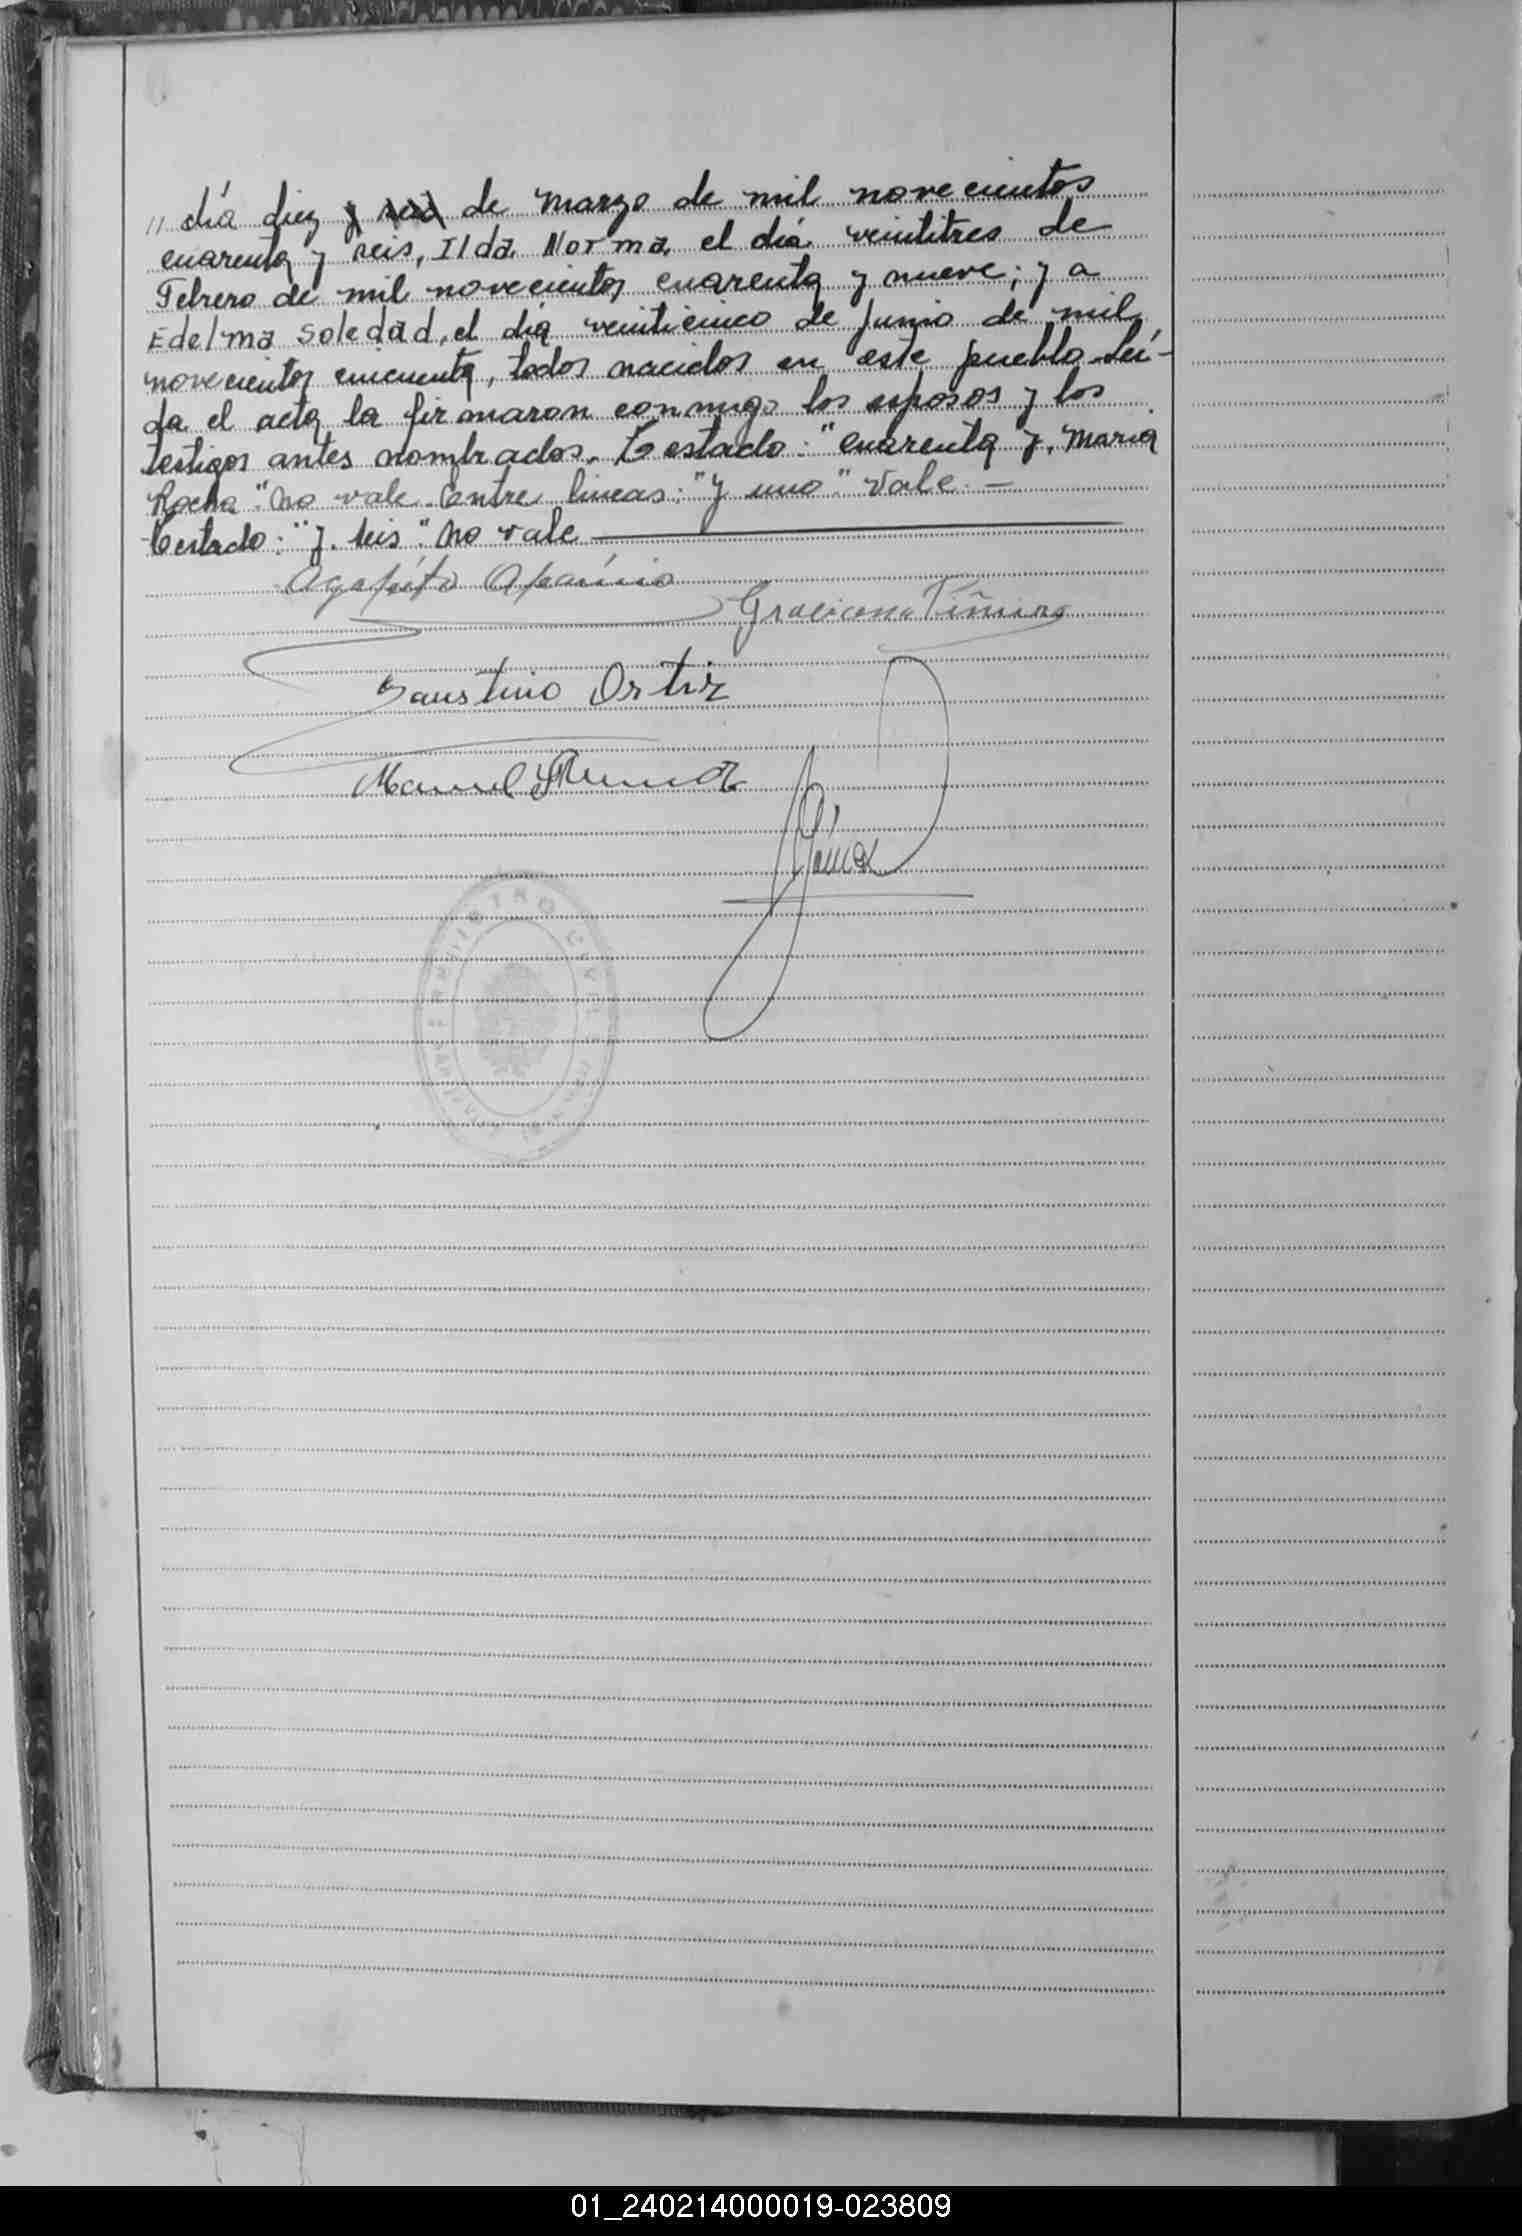 " día diez y seis de Marzo de mil novecientos
cuarenta y seis, Ilda Norma, el día veintitres de
Febrero de mil novecientos cuarenta y nueve; y a
Edelma Soledad, el día veinticinco de Junio de mil
novecientos cincuenta, todos nacidos en este pueblo. Leí-
da el acta la firmaron conmigo los esposos y los
testigos antes nombrados. Testado: "cuarenta y, Maria
Rocha" No vale. Entre lineas: "y uno" Vale. —
Testado: "y seis". No vale
Agapito Aparicio
Graciana
Faustino Ortiz
Manuel
REGISTRO CIVIL
01_240214000019-023809